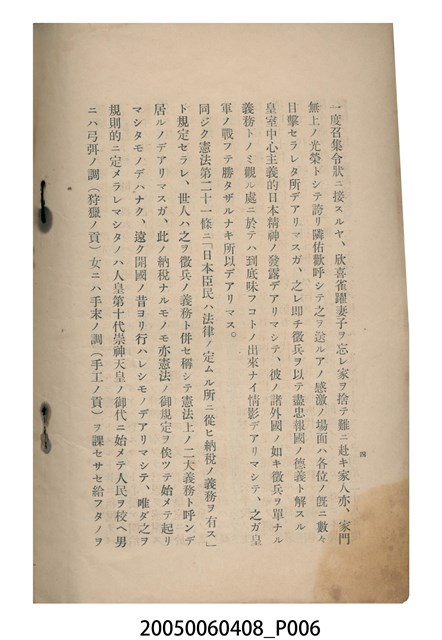 一度召集令狀ニ接スルヤ、欣喜雀躍妻子ヲ忘レ家ヲ捨テ難ニ赴キ家人亦、家門
無上ノ光榮トシテ誇リ隣佑歡呼シテ之ヲ送ルアノ感激ノ場面ハ各位ノ旣ニ數々
目擊セラレタ所デアリマスガ、之レ卽チ徵兵ヲ以テ盡忠報國ノ德義ト解スル
皇室中心主義的日本精神ノ發露デアリマシテ、彼ノ諸外國ノ如キ徵兵ヲ單ナル
義務トノミ觀ル處ニ於テハ到底味フコトノ出來ナイ情影デアリマシテ、之ガ皇
軍ノ戰フテ勝タザルナキ所以デアリマス。
同ジク憲法第二十一條ニ「日本臣民ハ法律ノ定ムル所ニ從ヒ納稅ノ義務ヲ有ス」
ト規定セラレ、世人ハ之ヲ徵兵ノ義務ト併セ稱シテ憲法上ノ二大義務ト呼ンデ
居ルノデアリマスガ、此ノ納稅ナルモノモ亦憲法ノ御規定ヲ俟ツテ始メテ起リ
マシタモノデハナク、遠ク開國ノ昔ヨリ行ハレシモノデアリマシテ、唯ダ之ヲ
規則的ニ定メラレマシタノハ人皇第十代崇神天皇ノ御代ニ始メテ人民ヲ校ヘ男
ニハ弓弭ノ調（狩獵ノ貢）女ニハ手末ノ調（手工ノ貢）ヲ課セサセ給フタノヲ
四
20050060408_P006